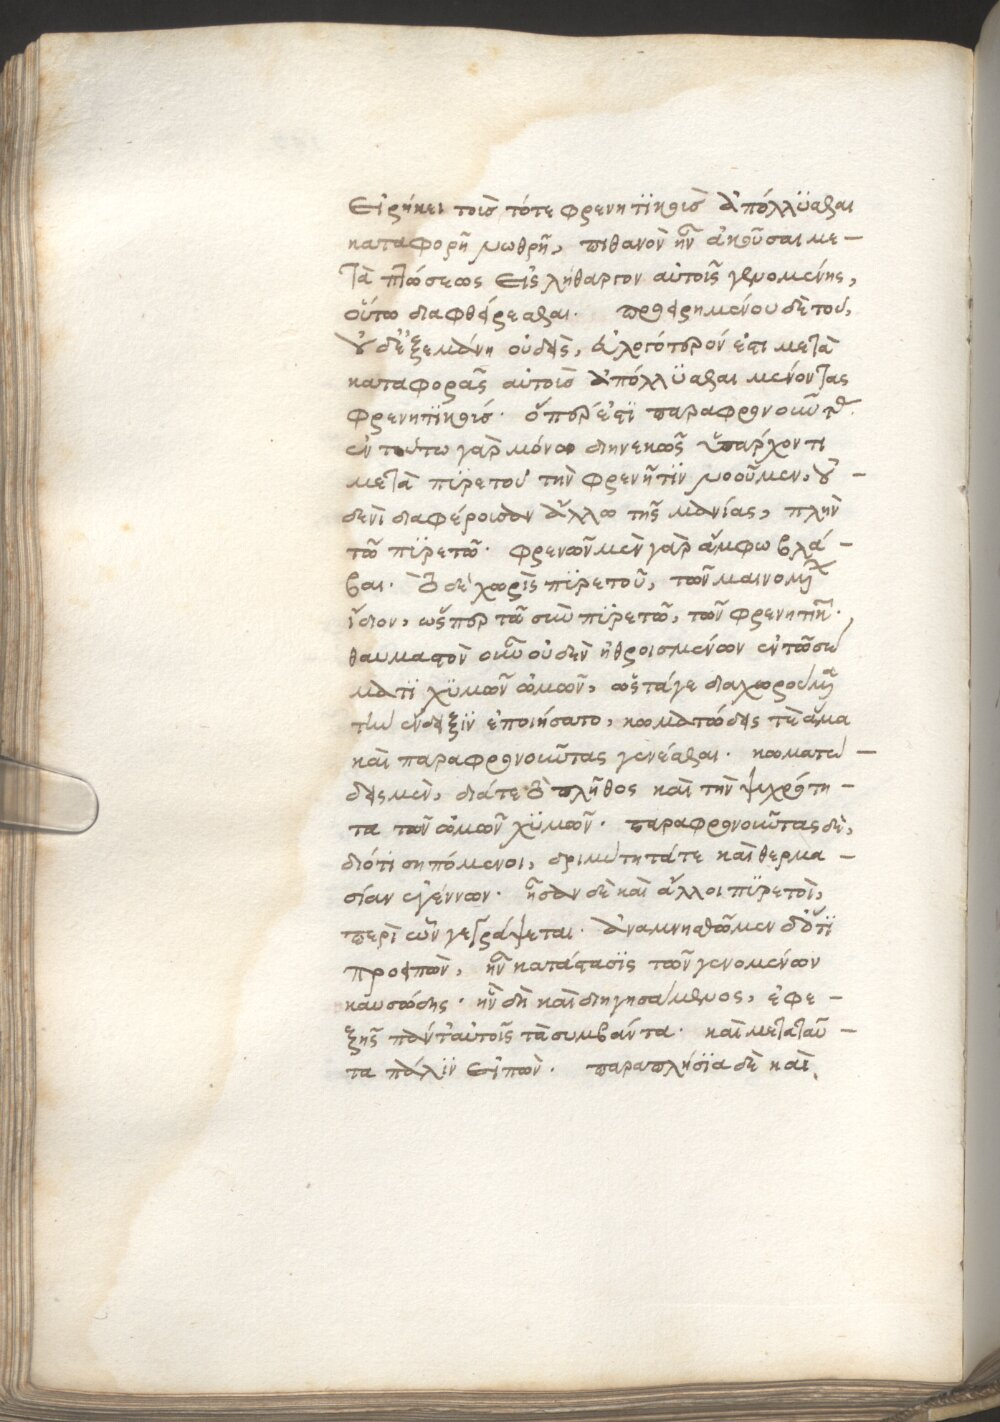 εἰρήκει τοῖσ τότε φρενητϊκοῖσ ἀπόλλϋσθαι
καταφορῇ νωθρῇ, πιθανὸν ἦν ἀκοῦσαι με-
τὰ πτώσεως εἰς λήθαργον αὐτοῖς γενομένης,
οὕτω διαφθείρεσθαι. προειρημένου δὲ τοῦ,
οὐδ' ἐξεμάνη οὐδείς, ἀλογώτερόν ἐστι μετὰ
καταφορᾶς αὐτοῖσ ἀπόλλϋσθαι μένοντας
φρενητϊκοῖσ. ὅπερ ἐστὶ παραφρονοῦντας.
ἐν τούτω γὰρ μόνω διηνεκῶς ὑπάρχοντι
μετὰ πϋρετοῦ τὴν φρενῆτϊν νοοῦμεν, οὐ-
δενὶ διαφέρουσαν ἄλλω τῆς μανίας, πλὴν
τῶ πϋρετῶ. φρενῶν μὲν γὰρ ἄμφω βλά-
βαι. τὸ δὲ χωρὶς πϋρετοῦ, τῶν μαινομένων
ἴδιον, ὥσπερ τὸ σὺν πϋρετῶ, τῶν φρενητικῶν.
θαυμαστὸν οὖν οὐδὲν ἠθροισμένων ἐν τῶ σώ
ματϊ χϋμῶν ὠμῶν, ὥς τά γε διαχωρούμενα
τὴν ἔνδειξϊν ἐποιήσατο, κωματώδεις τὲ ἅμα
καὶ παραφρονοῦντας γενέσθαι. κωματώ-
δεις μὲν, διά τε τὸ πλῆθος καὶ τὴν ψυχρότη-
τα τῶν ὠμῶν χϋμῶν. παραφρονοῦντας δὲ,
διότι σηπόμενοι, δριμύτητά τε καὶ θερμα-
σίαν ἐγέννων. ἦσαν δὲ καὶ ἄλλοι πϋρετοὶ,
περὶ ὧν γεγράψεται. ἀναμνησθῶμεν δ' ὅτϊ
προειπὼν, ἦν κατάστασϊς τῶν γενομένων
καυσώδης. ἣν δὴ καὶ διηγησάμενος, ἐφε-
ξῆς πάντ' αὐτοῖς τὰ συμβάντα. καὶ μετὰ ταῦ-
τα πάλϊν εἰπὼν. παραπλήσϊα δὲ καὶ